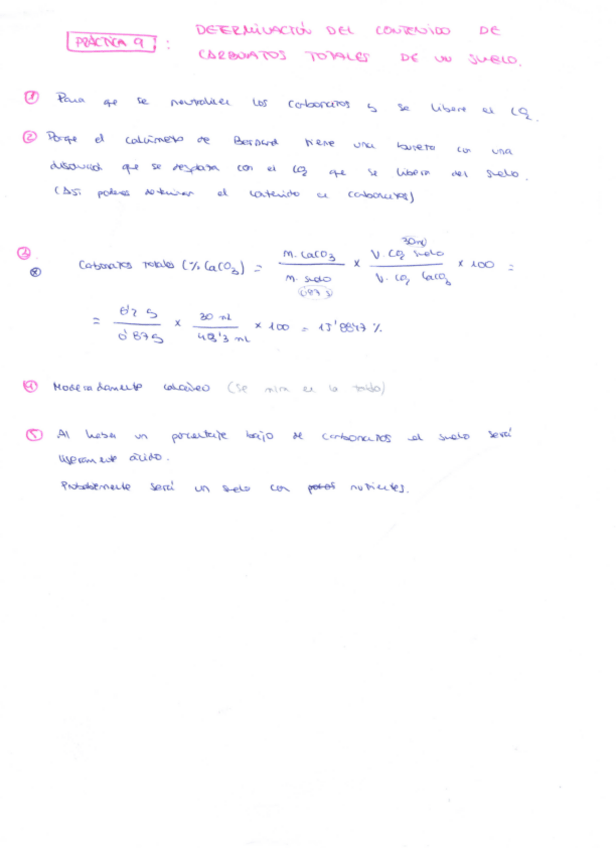 PRÁCTICA 9 : DETERMINACIÓN DEL CONTENIDO DE
CARBONATOS TOTALES DE UN SUELO.
① Para que se neutralicen los carbonatos y se libere el CO2.
② Porque el calcímetro de Bernard tiene una bureta con una
disolución que se desplaza con el CO2 que se libera del suelo.
(Así podemos determinar el contenido en carbonatos)
③ Carbonatos Totales (% CaCO3) = m. CaCO3 / m. suelo (0'87 g) × V. CO2 suelo (30 ml) / V. CO2 CaCO3 × 100 =
= 0'2 g / 0'87 g × 30 ml / 49'3 ml × 100 = 13'8847 %
④ Moderadamente calcáreo (Se mira en la tabla)
⑤ Al haber un porcentaje bajo de carbonatos el suelo será
ligeramente ácido.
Probablemente será un suelo con nutrientes.